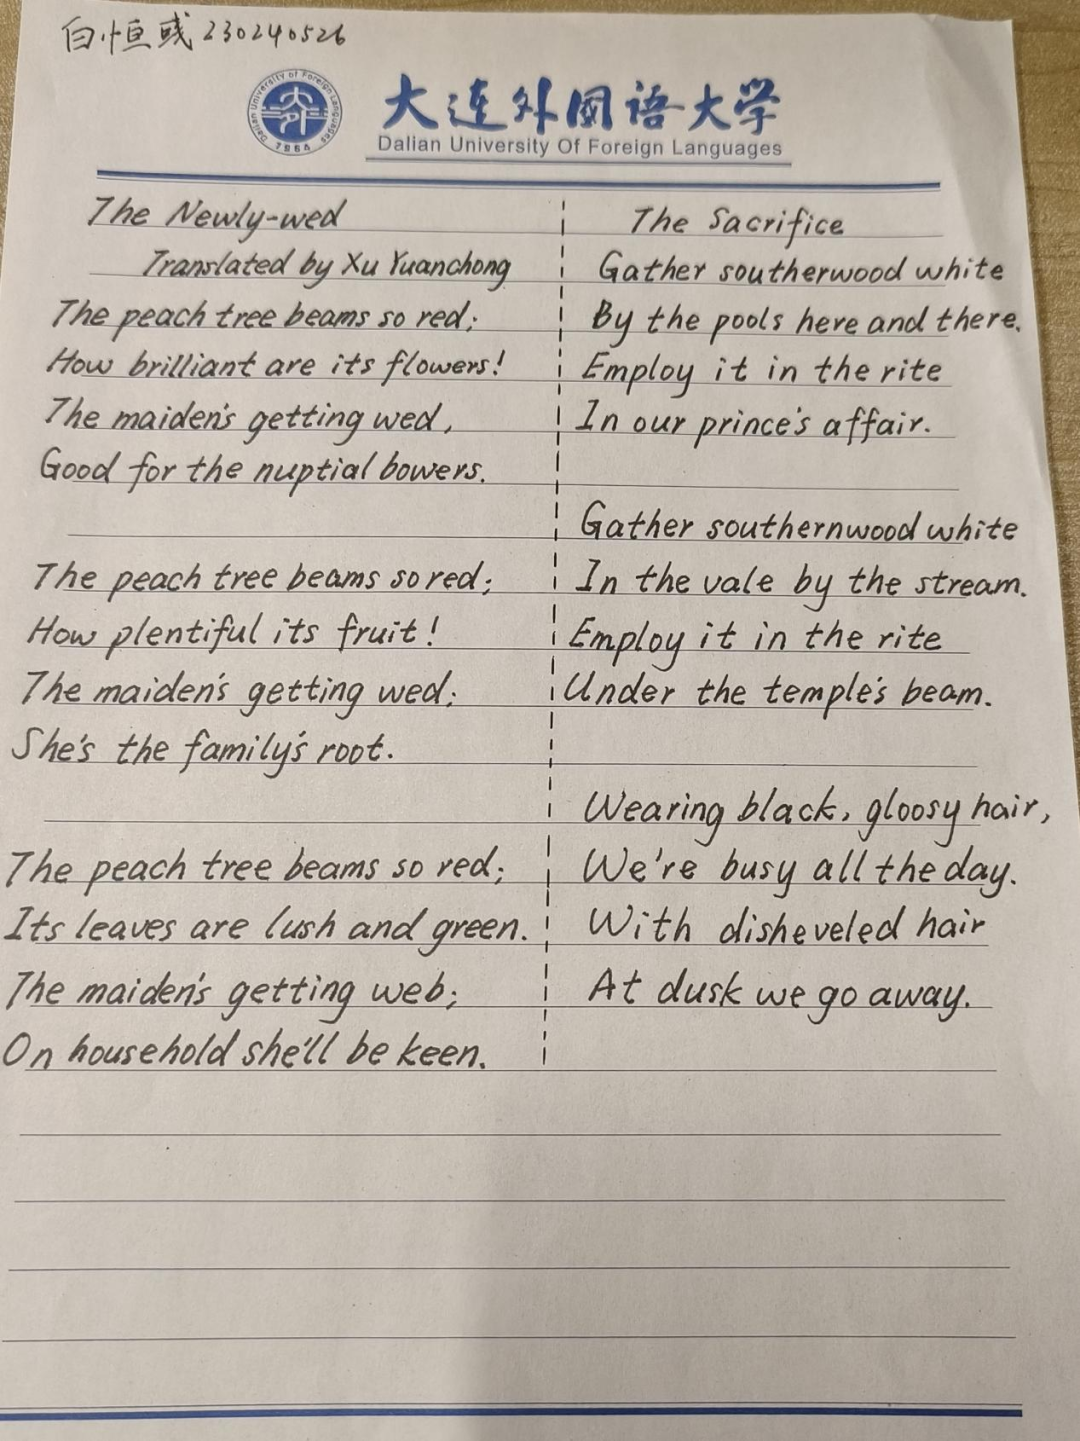 白恒彧 230240526
大连外国语大学
Dalian University Of Foreign Languages
Dalian University of Foreign Languages
1964
The Newly-wed
Translated by Xu Yuanchong
The peach tree beams so red;
How brilliant are its flowers!
The maiden's getting wed,
Good for the nuptial bowers.
The peach tree beams so red;
How plentiful its fruit!
The maiden's getting wed;
She's the family's root.
The peach tree beams so red;
Its leaves are lush and green.
The maiden's getting web;
On household she'll be keen.
The Sacrifice
Gather southerwood white
By the pools here and there.
Employ it in the rite
In our prince's affair.
Gather southernwood white
In the vale by the stream.
Employ it in the rite
Under the temple's beam.
Wearing black, gloosy hair,
We're busy all the day.
With disheveled hair
At dusk we go away.